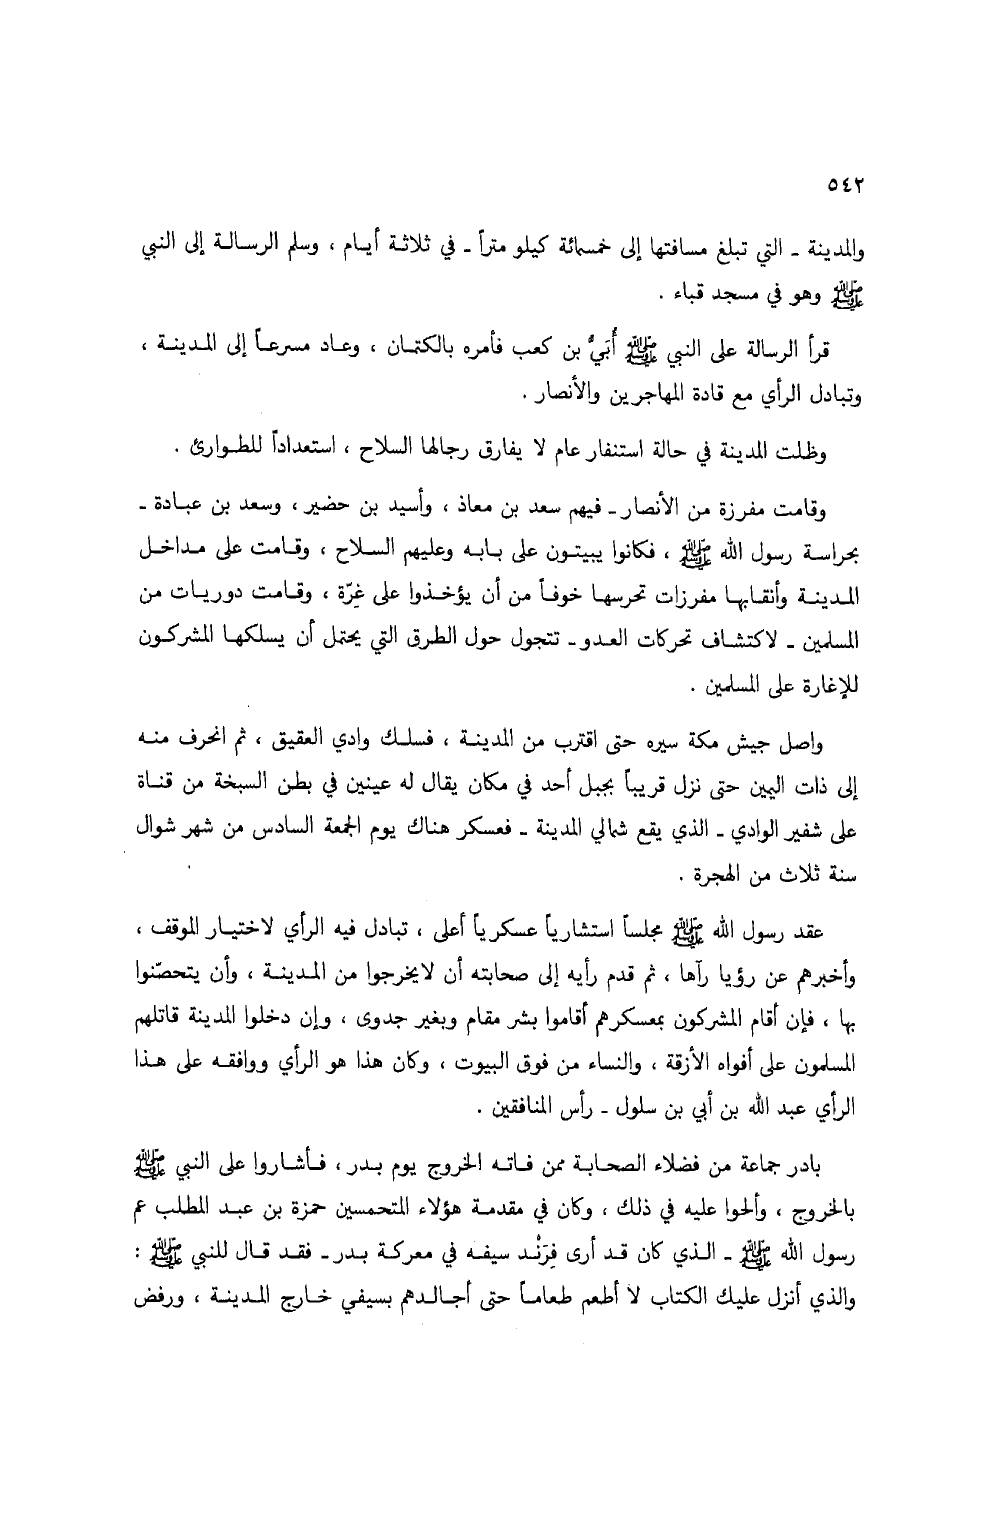 ٥٤٢
والمدينة ـ التي تبلغ مسافتها إلى خمسمائة كيلو متراً ـ في ثلاثة أيام ، وسلم الرسالة إلى النبي
ﷺ وهو في مسجد قباء .
قرأ الرسالة على النبي ﷺ أُبَيُّ بن كعب فأمره بالكتمان ، وعاد مسرعاً إلى المدينة ،
وتبادل الرأي مع قادة المهاجرين والأنصار .
وظلت المدينة في حالة استنفار عام لا يفارق رجالها السلاح ، استعداداً للطوارئ .
وقامت مفرزة من الأنصار ـ فيهم سعد بن معاذ ، وأسيد بن حضير ، وسعد بن عبادة ـ
بحراسة رسول الله ﷺ ، فكانوا يبيتون على بابه وعليهم السلاح ، وقامت على مداخل
المدينة وأنقابها مفرزات تحرسها خوفاً من أن يؤخذوا على غِرّة ، وقامت دوريات من
المسلمين ـ لاكتشاف تحركات العدو ـ تتجول حول الطرق التي يحتمل أن يسلكها المشركون
للإغارة على المسلمين .
واصل جيش مكة سيره حتى اقترب من المدينة ، فسلك وادي العقيق ، ثم انحرف منه
إلى ذات اليمين حتى نزل قريباً بجبل أحد في مكان يقال له عينين في بطن السبخة من قناة
على شفير الوادي ـ الذي يقع شمالي المدينة ـ فعسكر هناك يوم الجمعة السادس من شهر شوال
سنة ثلاث من الهجرة .
عقد رسول الله ﷺ مجلساً استشارياً عسكرياً أعلى ، تبادل فيه الرأي لاختيار الموقف ،
وأخبرهم عن رؤيا رآها ، ثم قدم رأيه إلى صحابته أن لايخرجوا من المدينة ، وأن يتحصّنوا
بها ، فإن أقام المشركون بمعسكرهم أقاموا بشر مقام وبغير جدوى ، وإن دخلوا المدينة قاتلهم
المسلمون على أفواه الأزقة ، والنساء من فوق البيوت ، وكان هذا هو الرأي ووافقه على هذا
الرأي عبد الله بن أبي بن سلول ـ رأس المنافقين .
بادر جماعة من فضلاء الصحابة ممن فاته الخروج يوم بدر ، فأشاروا على النبي ﷺ
بالخروج ، وألحوا عليه في ذلك ، وكان في مقدمة هؤلاء المتحمسين حمزة بن عبد المطلب عم
رسول الله ﷺ ـ الذي كان قد أرى فِرَنْد سيفه في معركة بدر ـ فقد قال للنبي ﷺ :
والذي أنزل عليك الكتاب لا أطعم طعاماً حتى أجالدهم بسيفي خارج المدينة ، ورفض